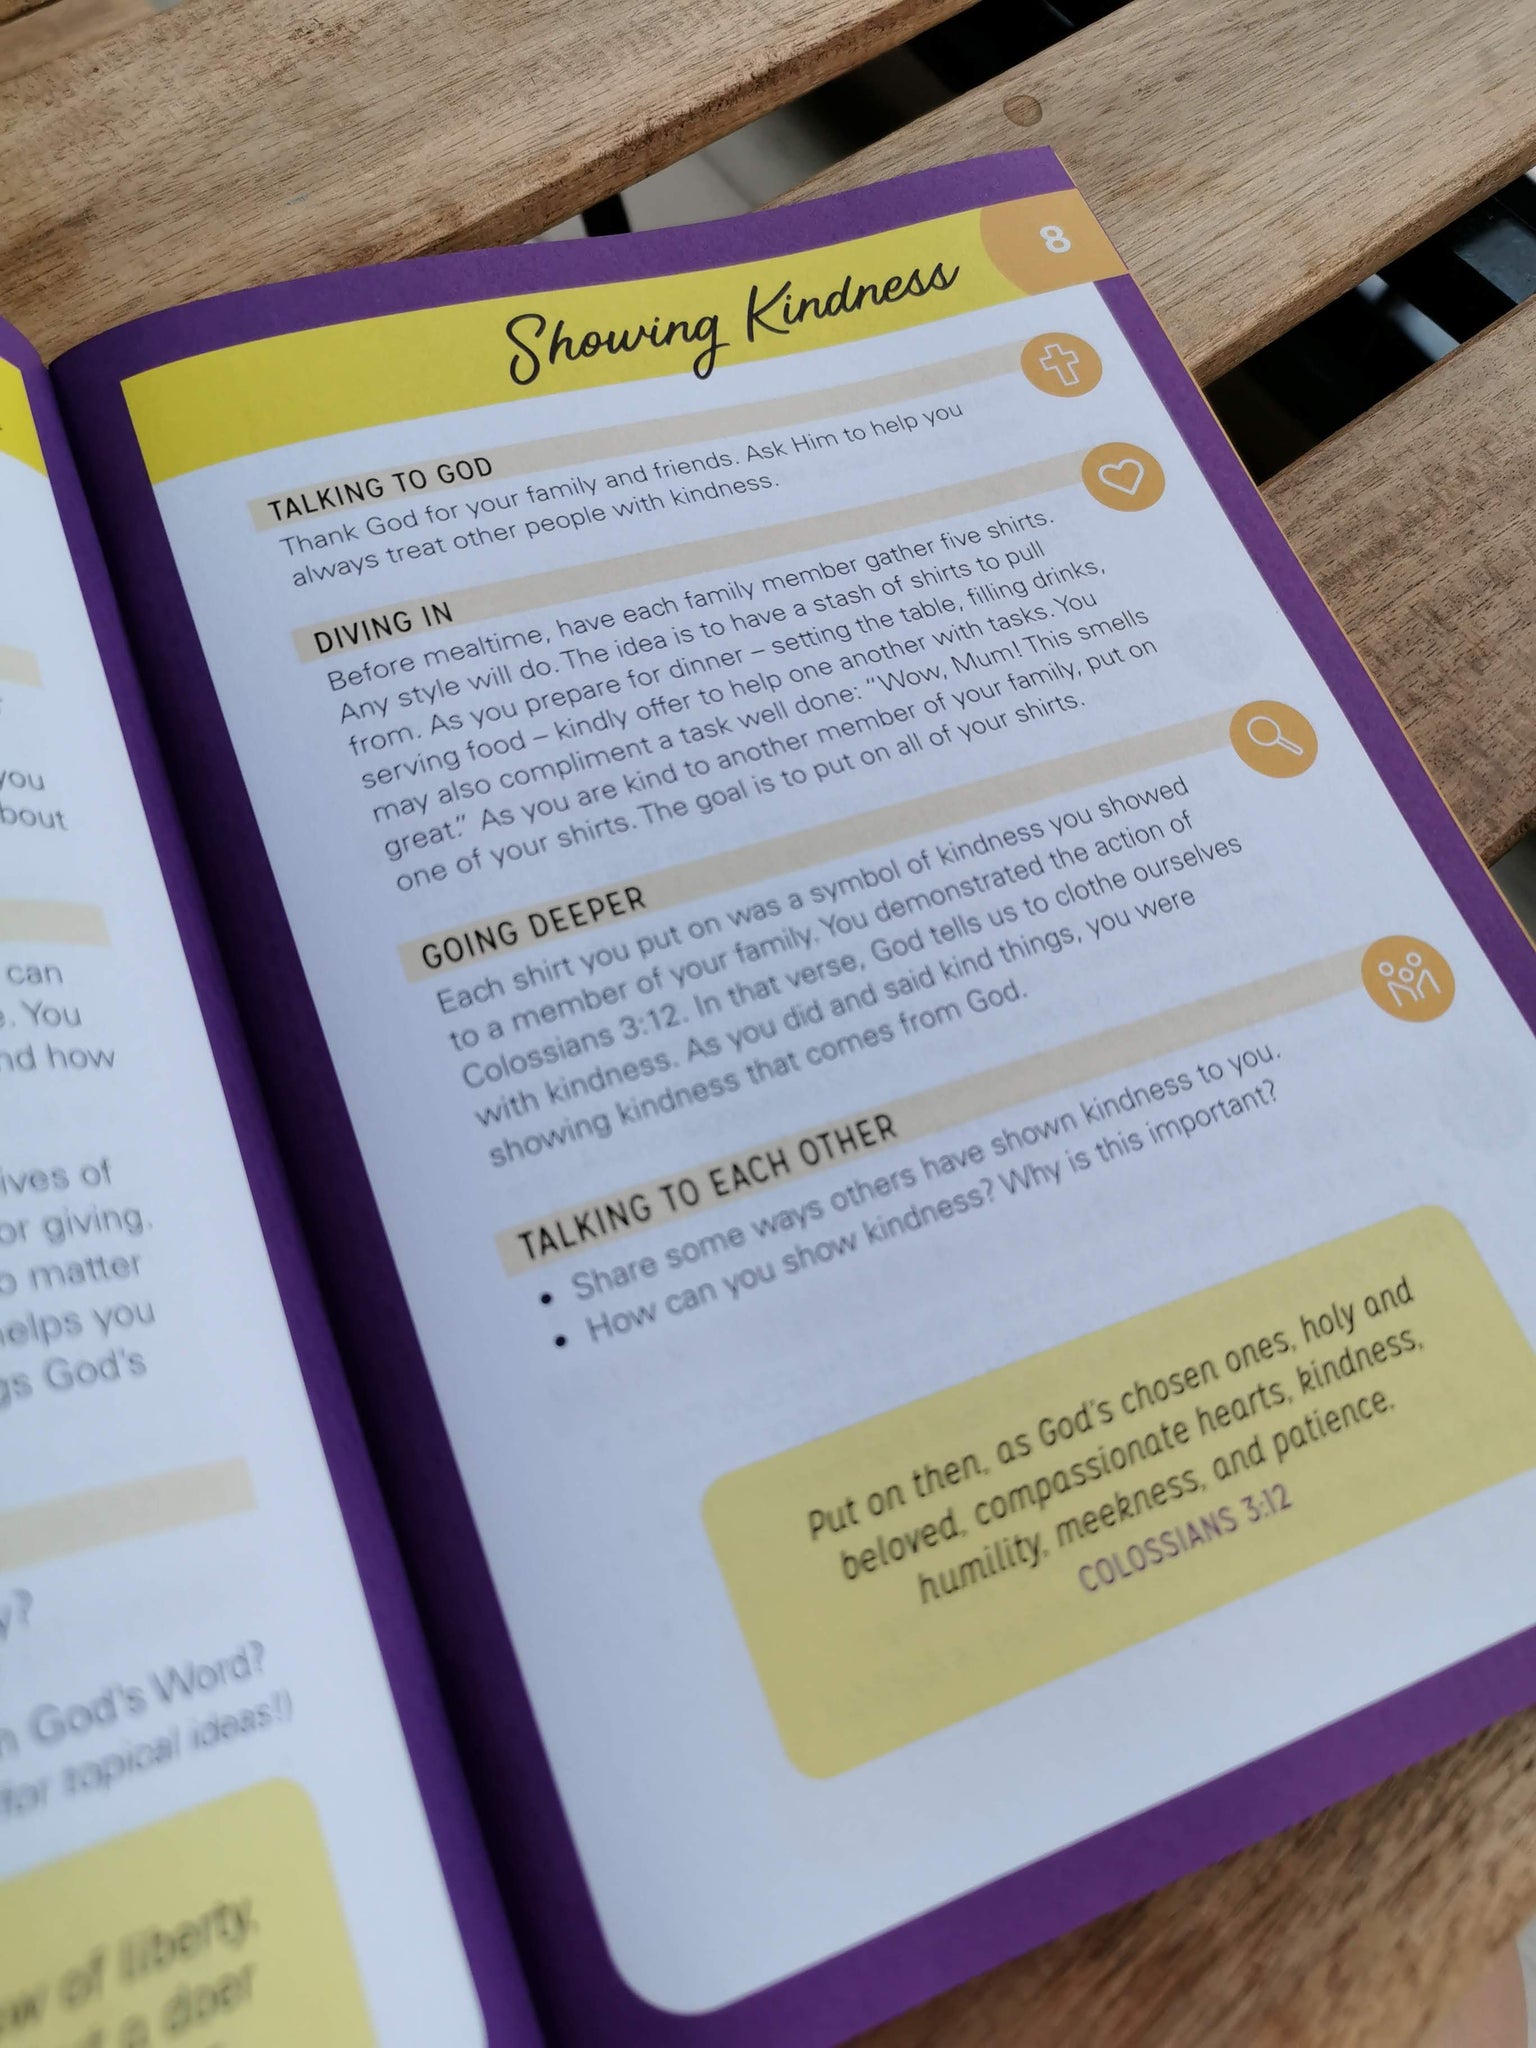 you
bout
can
. You
nd how
ives of
or giving.
matter
elps you
gs God's
y?
God's Word?
for topical ideas!)
of liberty,
a doer
8
Showing Kindness
TALKING TO GOD
Thank God for your family and friends. Ask Him to help you
always treat other people with kindness.
DIVING IN
Before mealtime, have each family member gather five shirts.
Any style will do. The idea is to have a stash of shirts to pull
from. As you prepare for dinner – setting the table, filling drinks,
serving food – kindly offer to help one another with tasks. You
may also compliment a task well done: "Wow, Mum! This smells
great." As you are kind to another member of your family, put on
one of your shirts. The goal is to put on all of your shirts.
GOING DEEPER
Each shirt you put on was a symbol of kindness you showed
to a member of your family. You demonstrated the action of
Colossians 3:12. In that verse, God tells us to clothe ourselves
with kindness. As you did and said kind things, you were
showing kindness that comes from God.
TALKING TO EACH OTHER
• Share some ways others have shown kindness to you.
• How can you show kindness? Why is this important?
Put on then, as God's chosen ones, holy and
beloved, compassionate hearts, kindness,
humility, meekness, and patience.
COLOSSIANS 3:12